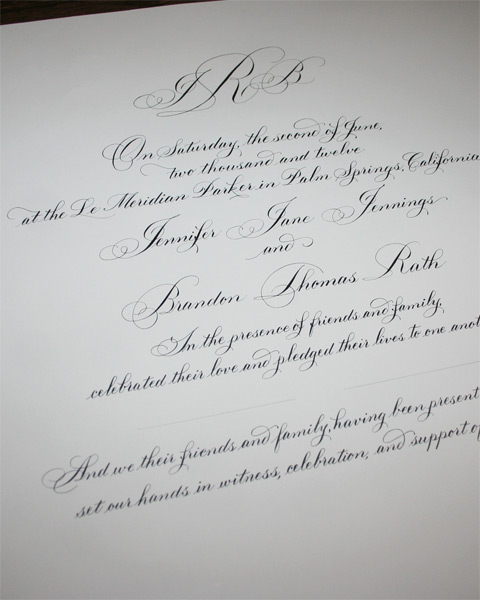 J R B
On Saturday, the second of June,
two thousand and twelve
at the Le Meridian Parker in Palm Springs, California
Jennifer Jane Jennings
and
Brandon Thomas Rath
In the presence of friends and family,
celebrated their love and pledged their lives to one anot
And we their friends and family, having been present
set our hands in witness, celebration, and support of